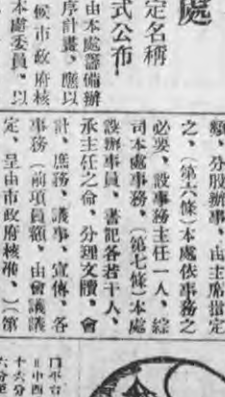 處
定名稱
式公布
由本處籌備辦
序計畫，應以
候市政府核
本處委員，以
額，分股辦事，由主席指定
之，（第六條）本處依事務之
必要，設事務主任一人，綜
司本處事務，（第七條）本處
設辦事員，書記各若干人，
承主任之命，分理文牘，會
計，庶務，議事，宣傳，各
事務（前項員額，由會議議
定，呈由市政府核准，）（第
中西
十六分
六分至